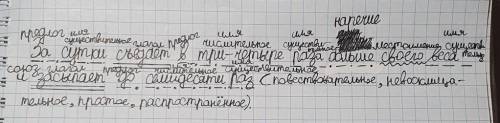 наречие
предлог имя существительное глагол предлог имя числительное имя существительное местоимение имя существительное
За сутки съедает в три-четыре раза больше своего веса
союз глагол предлог числительное имя существительное
и засыпает до семидесяти раз (повествовательное, невосклица-
тельное, простое, распространённое).